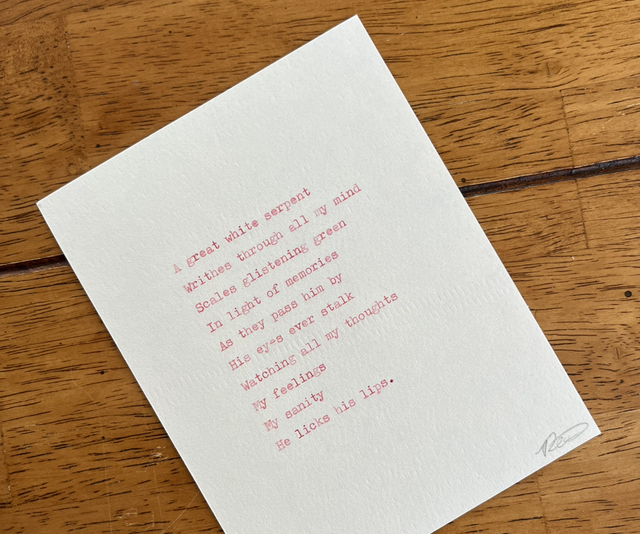 A great white serpent
Writhes through all my mind
Scales glistening green
In light of memories
As they pass him by
His eyes ever stalk
Watching all my thoughts
My feelings
My sanity
He licks his lips.